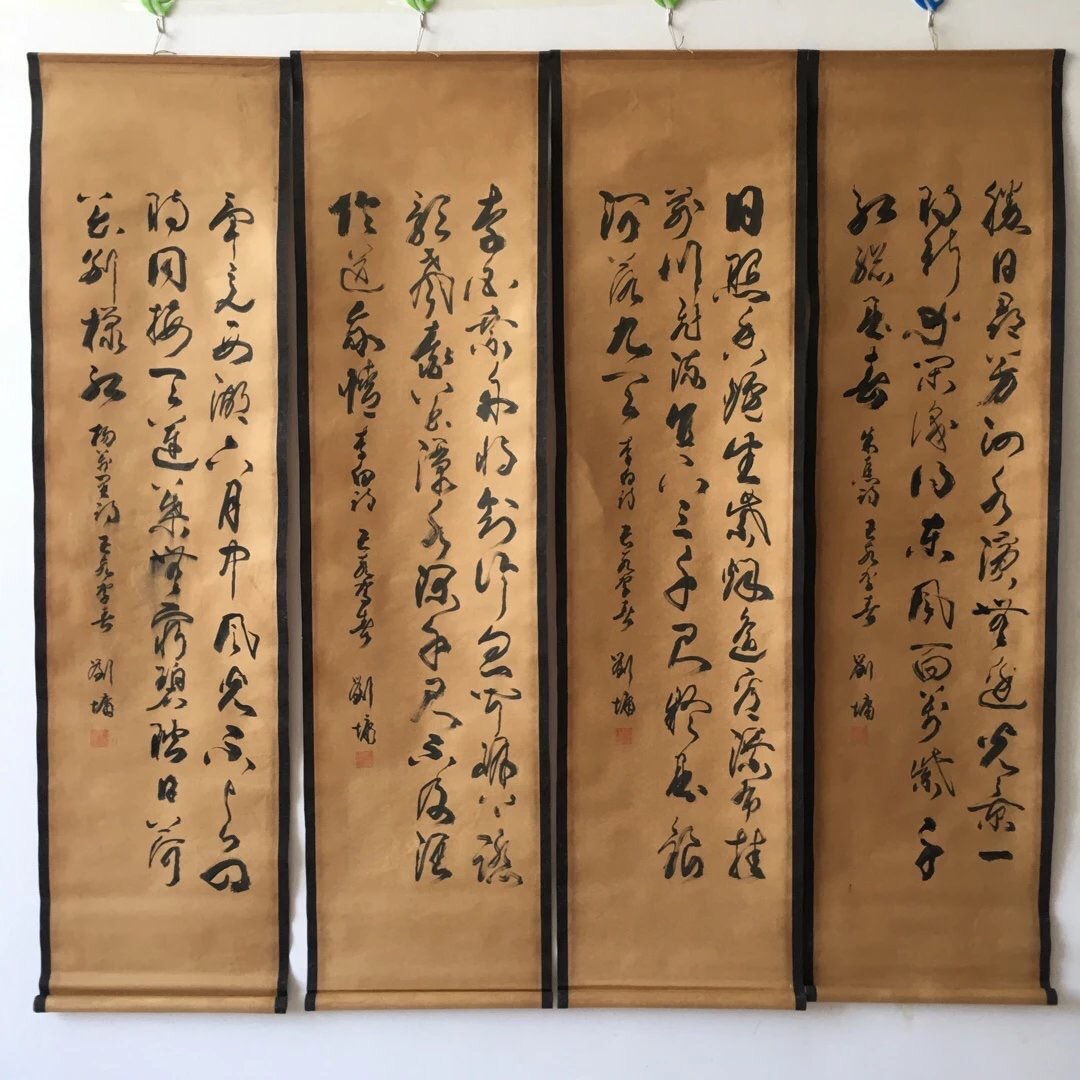 勝日尋芳泗水濱無邊光景一
時新等閑識得東風面萬紫千
紅總是春 朱熹詩 劉墉
日照香爐生紫煙遙看瀑布挂
前川飛流直下三千尺疑是銀
河落九天 李白詩 劉墉
李白乘舟將欲行忽聞岸上踏
歌聲桃花潭水深千尺不及汪
倫送我情 李白詩 劉墉
畢竟西湖六月中風光不與四
時同接天蓮葉無窮碧映日荷
花別樣紅 楊萬里詩 劉墉